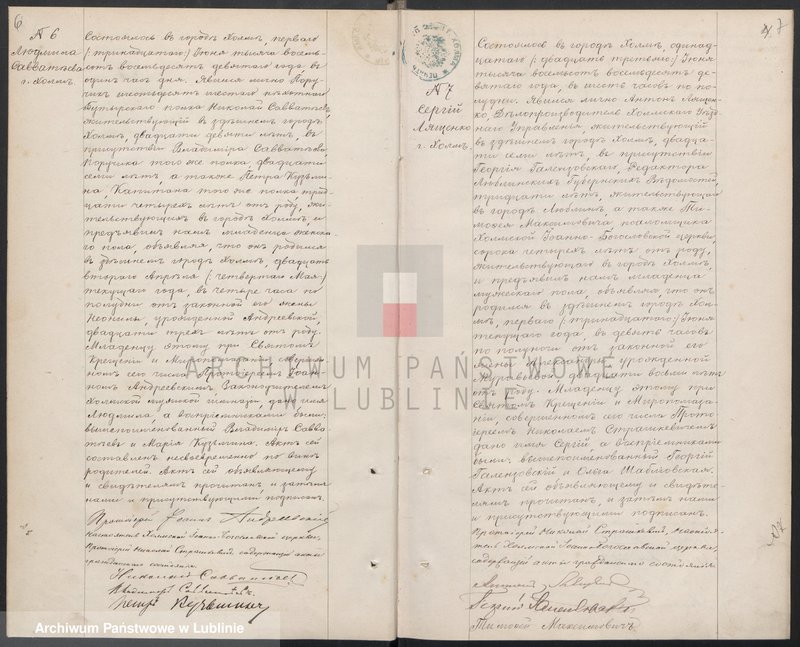 6
№ 6
Людмила
Савватѣева
г. Холмъ.
Состоялось въ городѣ Холмѣ, перваго
(: тринадцатаго:) Іюня тысяча восемь-
сотъ восемьдесятъ девятаго года въ
одинъ часъ дня. Явился лично Пору-
чикъ шестьдесятъ шестаго пѣхотнаго
Бутырскаго полка Николай Савватѣевъ,
жительствующій въ здѣшнемъ городѣ
Холмѣ, двадцати девяти лѣтъ, въ
присутствіи Владиміра Савватѣева,
Поручика того же полка, двадцати
семи лѣтъ, а также Петра Кузьми-
на, Капитана того же полка трид-
цати четырехъ лѣтъ отъ роду, жи-
тельствующихъ въ городѣ Холмѣ, и
предъявилъ намъ младенца женска-
го пола, объявляя, что онъ родился
въ здѣшнемъ городѣ Холмѣ, двадцать
втораго Апрѣля (: четвертаго Мая:)
текущаго года, въ четыре часа по
полудни отъ законной его жены
урожденной Андреевской,
двадцати трехъ лѣтъ отъ роду.
Младенцу этому при Святомъ
Крещеніи и Миропомазаніи, совершен-
номъ сего числа Протоіереемъ Іоан-
номъ Андреевскимъ Законоучителемъ
Холмской мужской гимназіи, дано имя
Людмила, а воспріемниками были:
вышепоименованный Владиміръ Савва-
тѣевъ и Марія Кузьмина. Актъ сей
составленъ несвоевременно по винѣ
родителей. Актъ сей объявляющему
и свидѣтелямъ прочитанъ и затѣмъ
нами и присутствующими подписанъ.
Протоіерей Іоаннъ Андреевскій
Настоятель Холмской Іоанно-Богословской церкви,
Протоіерей Николай Страшкевичъ, содержащій акты
гражданскаго состоянія.
Николай Савватѣевъ
Владиміръ Савватѣевъ
Петръ Кузьминъ
7
№ 7
Сергій
Лященко
г. Холмъ.
Состоялось въ городѣ Холмѣ, одинад-
цатаго (: двадцать третьяго:) Іюня
тысяча восемьсотъ восемьдесятъ де-
вятаго года, въ шесть часовъ по по-
лудни. Явился лично Антонъ Лящен-
ко, Дѣлопроизводитель Холмскаго Уѣзд-
наго Управленія, жительствующій
въ здѣшнемъ городѣ Холмѣ, двадца-
ти семи лѣтъ, въ присутствіи
Георгія Галензовскаго, Редактора
Люблинскихъ Губернскихъ Вѣдомостей,
тридцати лѣтъ, жительствующаго
въ городѣ Люблинѣ, а также Ти-
моѳея Максимовича псаломщика
Холмской Іоанно-Богословской церкви,
сорока четырехъ лѣтъ отъ роду,
жительствующаго въ городѣ Холмѣ,
и предъявилъ намъ младенца
мужескаго пола, объявляя, что онъ
родился въ здѣшнемъ городѣ Хол-
мѣ, перваго (: тринадцатаго:) Іюня
текущаго года, въ девять часовъ
по полуночи отъ законной его
жены Александры урожденной
Муравьевой, двадцати восьми лѣтъ
отъ роду. Младенцу этому при
Святомъ Крещеніи и Миропомаза-
ніи, совершенномъ сего числа Прото-
іереемъ Николаемъ Страшкевичемъ
дано имя Сергій, а воспріемниками
были: вышепоименованный Георгій
Галензовскій и Ольга Шабловская.
Актъ сей объявляющему и свидѣте-
лямъ прочитанъ, и затѣмъ нами
и присутствующими подписанъ.
Протоіерей Николай Страшкевичъ, настоя-
тель Холмской Іоанно-Богословской церкви,
содержащій акты гражданскаго состоянія.
Антонъ Лященко
Георгій Галензовскій
Тимоѳей Максимовичъ
ARCHIWUM PAŃSTWOWE
W LUBLINIE
Archiwum Państwowe w Lublinie